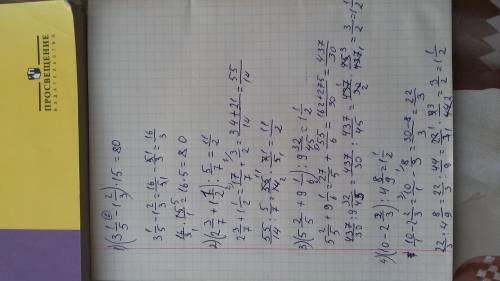 ПРОСВЕЩЕНИЕ
ИЗДАТЕЛЬСТВО
1) (3 1/5 - 1 2/3) · 15 = 80
3 1/5 - 1 2/3 = 16/3
16 · 5 = 80
2) (2 3/7 + 1 1/2) : 5/7 = 11/2
2 3/7 + 1 1/2 = 17/7 + 3/2 = 34+21/14 = 55/14
55/14 : 5/7 = 55/14 · 7/5 = 11/2
3) (5 2/5 + 9 1/6) : 9 32/45 = 1 1/2
5 2/5 + 9 1/6 = 27/5 + 55/6 = 162+275/30 = 437/30
437/30 : 9 32/45 = 437/30 : 437/45 = 437/30 · 45/437 = 3/2 = 1 1/2
4) (10 - 2 2/3) : 4 8/9 = 1 1/2
10 - 2 2/3 = 10/1 - 8/3 = 30-8/3 = 22/3
22/3 : 4 8/9 = 22/3 : 44/9 = 3/2 = 1 1/2